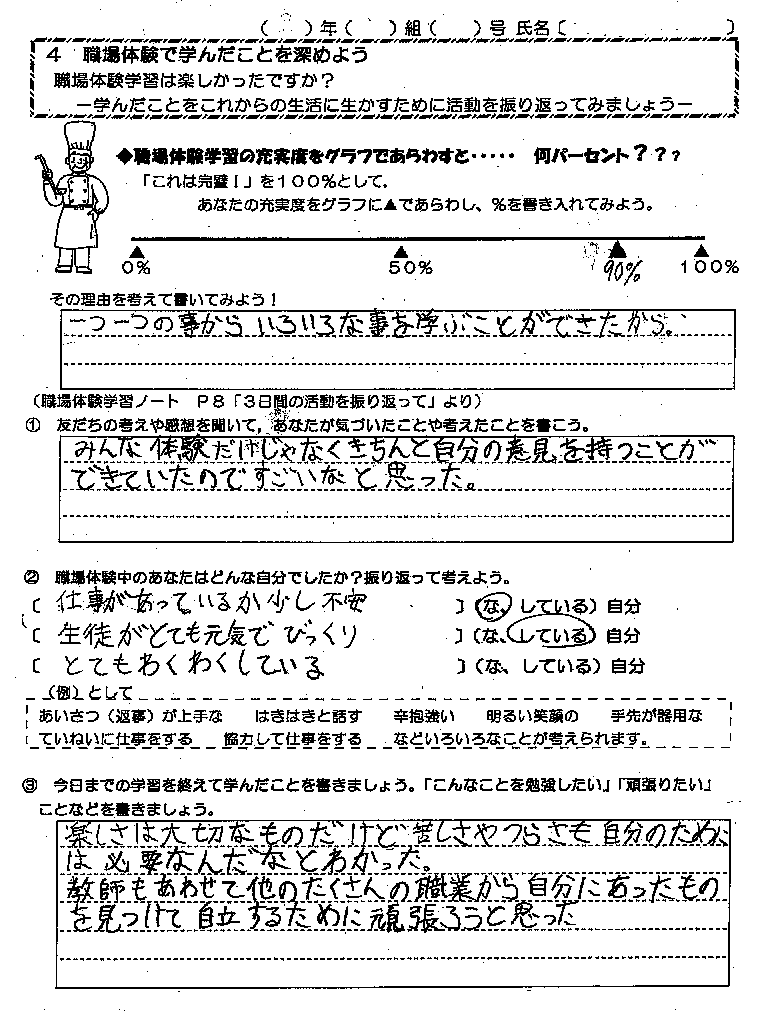 （　）年（　）組（　）号 氏名〔　　　〕
４　職場体験で学んだことを深めよう
職場体験学習は楽しかったですか？
－学んだことをこれからの生活に生かすために活動を振り返ってみましょう－
◆職場体験学習の充実度をグラフであらわすと・・・・・　何パーセント？？？
「これは完璧！」を１００％として．
あなたの充実度をグラフに▲であらわし、％を書き入れてみよう。
0％　50％　90%　100％
その理由を考えて書いてみよう！
一つ一つの事からいろいろな事を学ぶことができたから。
（職場体験学習ノート　Ｐ８「３日間の活動を振り返って」より）
①　友だちの考えや感想を聞いて，あなたが気づいたことや考えたことを書こう。
みんな体験だけじゃなくきちんと自分の意見を持つことが
できていたのですごいなと思った。
②　職場体験中のあなたはどんな自分でしたか？振り返って考えよう。
〔 仕事があっているか少し不安 〕（な、している）自分
〔 生徒がとても元気でびっくり 〕（な、している）自分
〔 とてもわくわくしている 〕（な、している）自分
（例）として
あいさつ（返事）が上手な　はきはきと話す　辛抱強い　明るい笑顔の　手先が器用な
ていねいに仕事をする　協力して仕事をする　などいろいろなことが考えられます。
③　今日までの学習を終えて学んだことを書きましょう。「こんなことを勉強したい」「頑張りたい」
ことなどを書きましょう。
楽しさは大切なものだけど苦しさやつらさも自分のために
は必要なんだなとわかった。
教師もあわせて他のたくさんの職業から自分にあったもの
を見つけて自立するために頑張ろうと思った